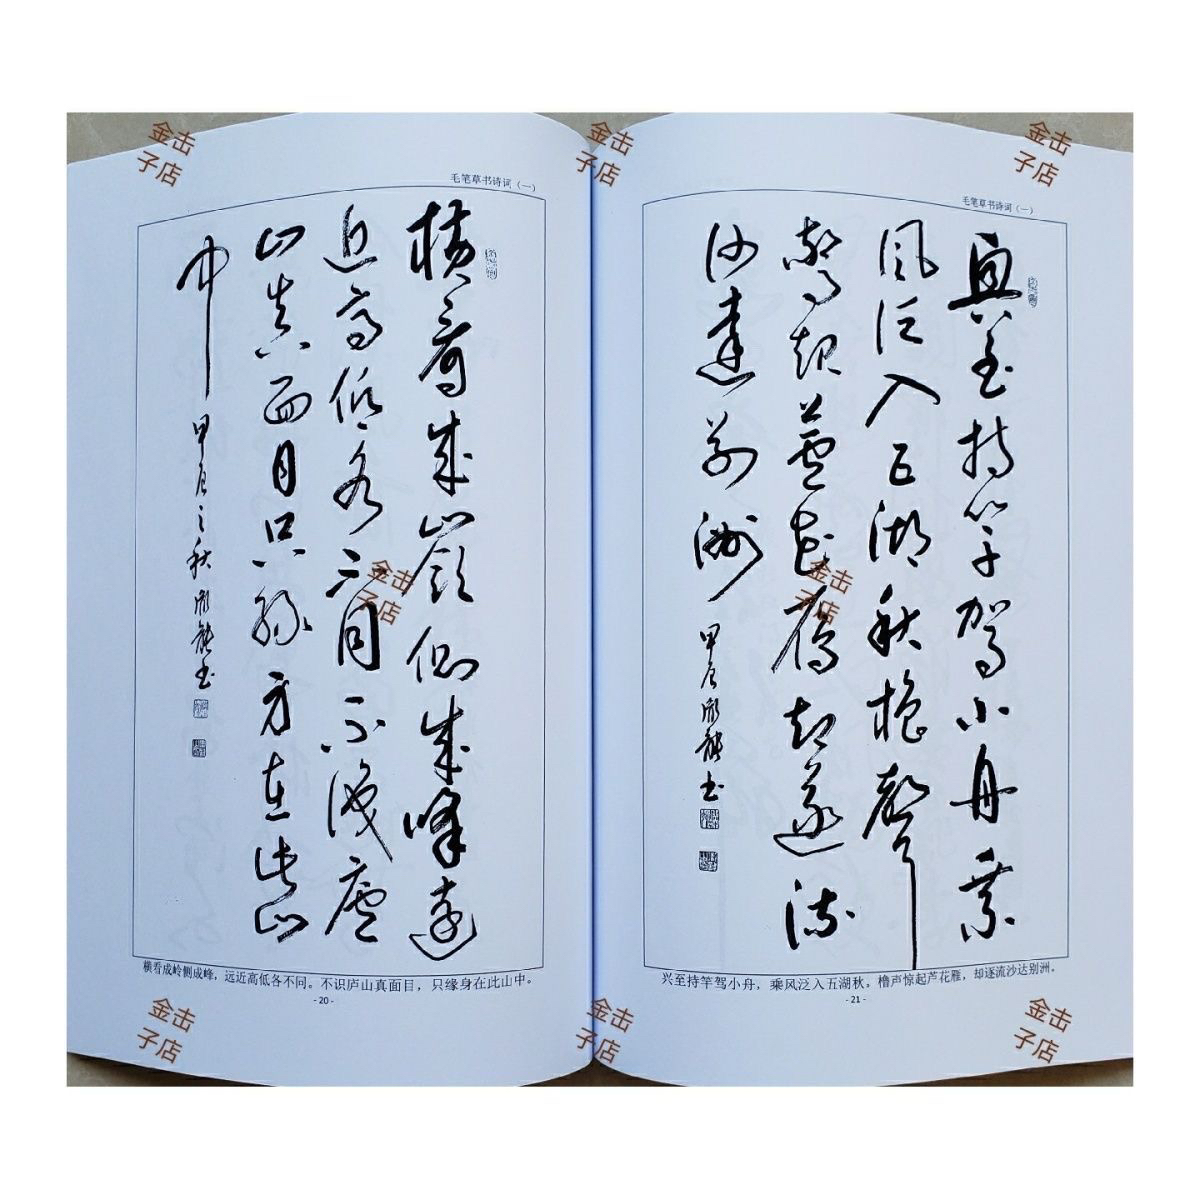 金击
子店
金击
子店
金击
子店
毛笔草书诗词（一）
横看成嶺側成峰遠
近高低各不同不識廬
山真面目只緣身在此山
中
甲辰之秋 书
金击
子店
横看成岭侧成峰，远近高低各不同。不识庐山真面目，只缘身在此山中。
- 20 -
毛笔草书诗词（一）
興至持竿駕小舟乘
風泛入五湖秋櫓聲
驚起蘆花雁却逐流
沙達别洲
甲辰 书
金击
子店
兴至持竿驾小舟，乘风泛入五湖秋。橹声惊起芦花雁，却逐流沙达别洲。
- 21 -
金击
子店
金击
子店
金击
子店